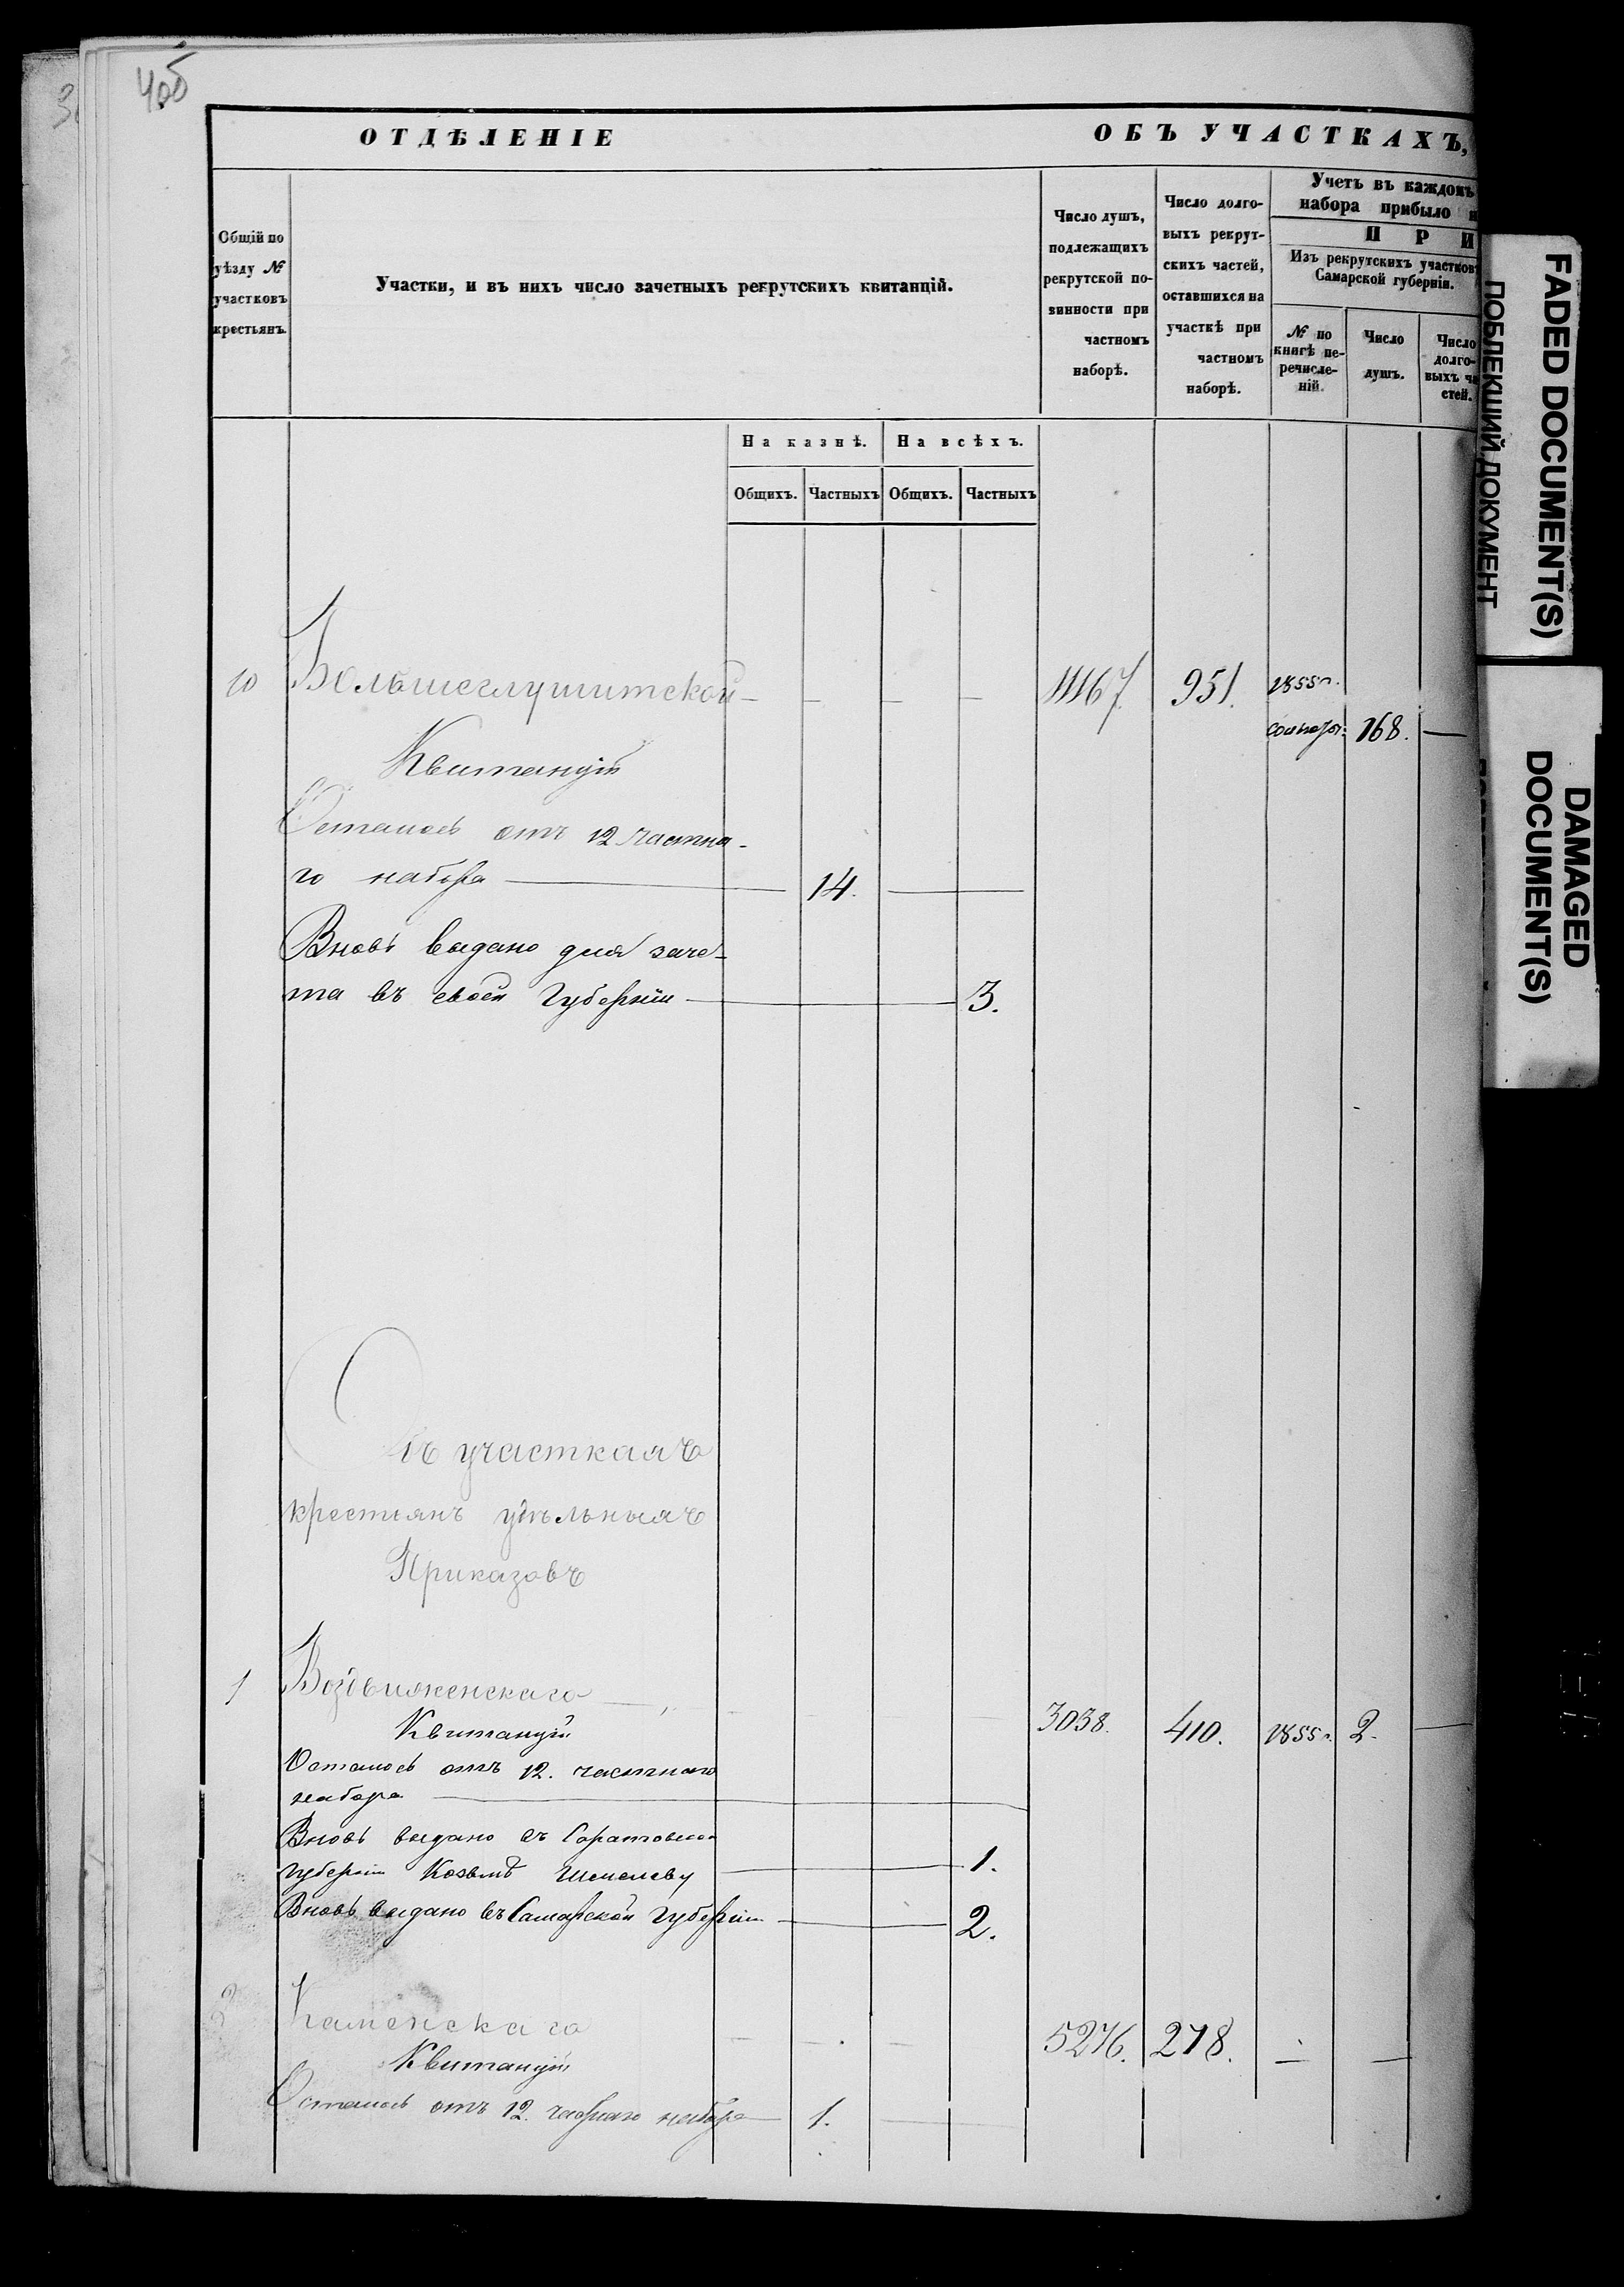 40б
ОТДѢЛЕНІЕ
ОБЪ УЧАСТКАХЪ,
Общій по
уѣзду №
участковъ
крестьянъ.
Участки, и въ нихъ число зачетныхъ рекрутскихъ квитанцій.
Число душъ,
подлежащихъ
рекрутской по-
винности при
частномъ
наборѣ.
Число долго-
выхъ рекрут-
скихъ частей,
оставшихся на
участкѣ при
частномъ
наборѣ.
Учетъ въ каждомъ
набора прибыло и
ПРИ
Изъ рекрутскихъ участковъ
Самарской губерніи.
№ по
книгѣ пе-
речисле-
ній.
Число
душъ.
Число
долго-
выхъ ча
стей.
На казнѣ. На всѣхъ.
Общихъ. Частныхъ Общихъ. Частныхъ
10 Большеглушитской — — — — 11167. 951. 1855 г.
168. —
Квитанцій
Осталось отъ 12 частна-
го набора — 14. —
Вновь выдано для заче-
та въ своей Губерніи — 3.
Объ участкахъ
крестьянъ удѣльныхъ
Приказовъ
1 Воздвиженскаго — 3038. 410. 1855 г. 2. —
Квитанцій
Осталось отъ 12. частнаго
набора —
Вновь выдано въ Саратовской
губерніи Козьмѣ Шмелеву — 1.
Вновь выдано въ Самарской Губерніи — 2.
2 Каменскаго — — — 5276. 278. — —
Квитанцій
Осталось отъ 12. частнаго набора — 1. —
FADED DOCUMENT(S)
ПОБЛЕКШИЙ ДОКУМЕНТ
DAMAGED
DOCUMENT(S)